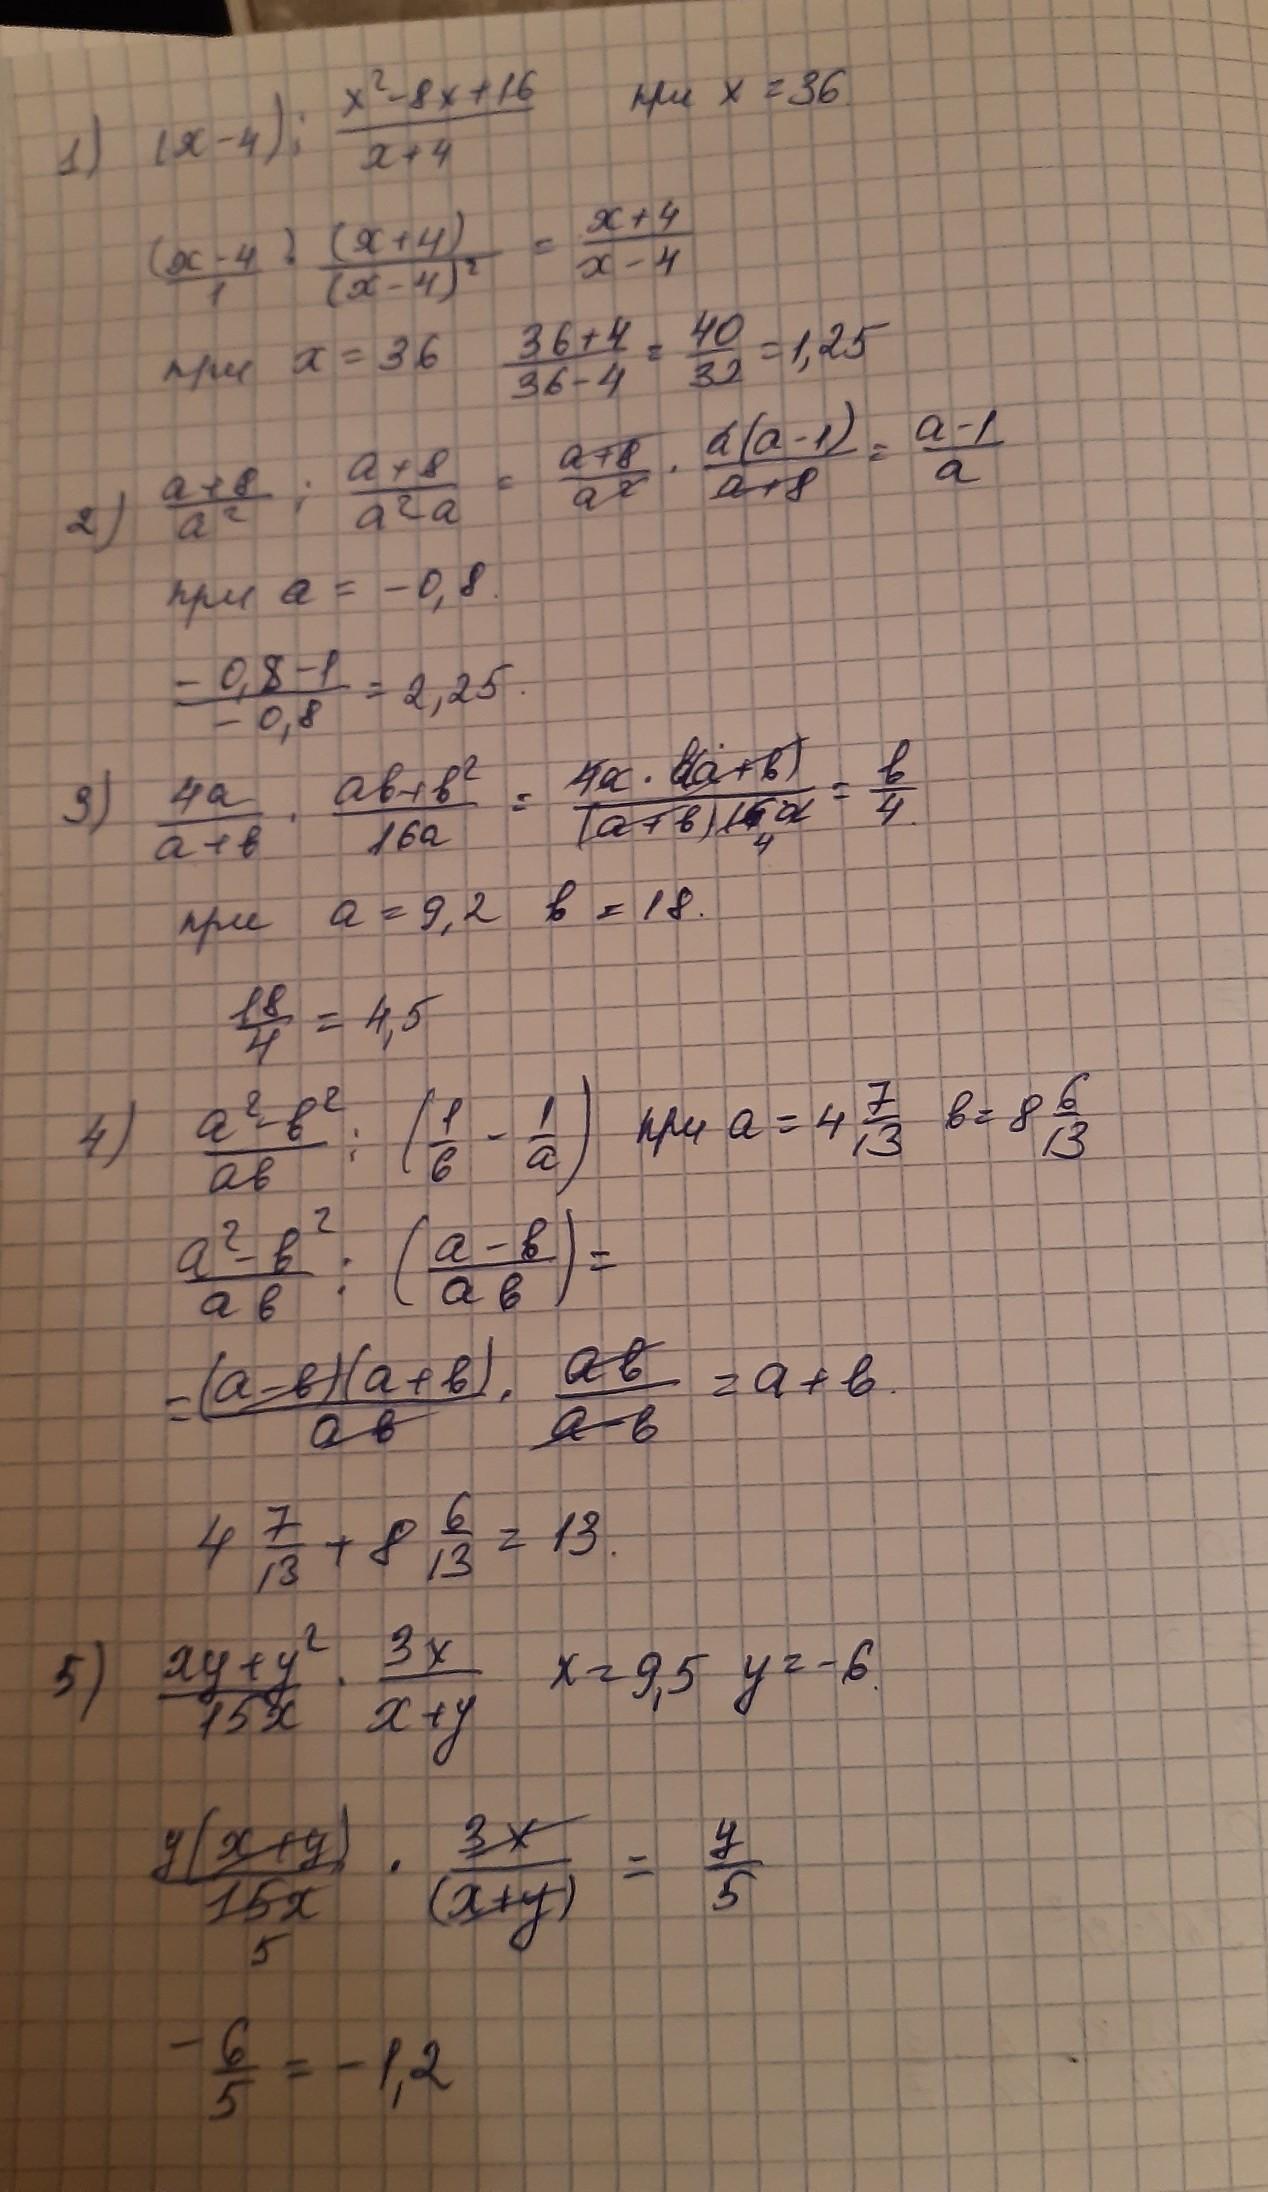 1) (x-4) : \frac{x²-8x+16}{x+4} при x = 36
\frac{(x-4}{1} : \frac{(x+4)}{(x-4)²} = \frac{x+4}{x-4}
при x = 36 \frac{36+4}{36-4} = \frac{40}{32} = 1,25
2) \frac{a+8}{a²} : \frac{a+8}{a²-a} = \frac{a+8}{a²} · \frac{a(a-1)}{a+8} = \frac{a-1}{a}
при a = -0,8.
\frac{-0,8-1}{-0,8} = 2,25.
3) \frac{4a}{a+в} · \frac{aв+в²}{16a} = \frac{4a · в(a+в)}{(a+в)16a} = \frac{в}{4}.
4
при a = 9,2 в = 18.
\frac{18}{4} = 4,5
4) \frac{a²-в²}{aв} : (\frac{1}{в} - \frac{1}{a}) при a = 4\frac{7}{13} в = 8\frac{6}{13}
\frac{a²-в²}{aв} : (\frac{a-в}{aв}) =
= \frac{(a-в)(a+в)}{aв} · \frac{aв}{a-в} = a+в.
4\frac{7}{13} + 8\frac{6}{13} = 13.
5) \frac{xy+y²}{15x} · \frac{3x}{x+y} x = 9,5 y = -6.
\frac{y(x+y)}{15x} · \frac{3x}{(x+y)} = \frac{y}{5}
5
-\frac{6}{5} = -1,2